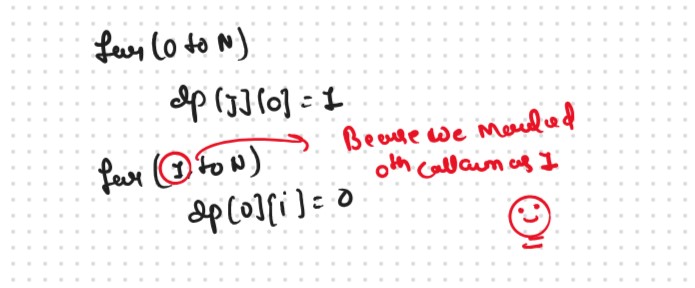 for (0 to N)
dp[J][0] = 1
for (1 to N)
dp[0][i] = 0
Because we marked
0th collumn as 1